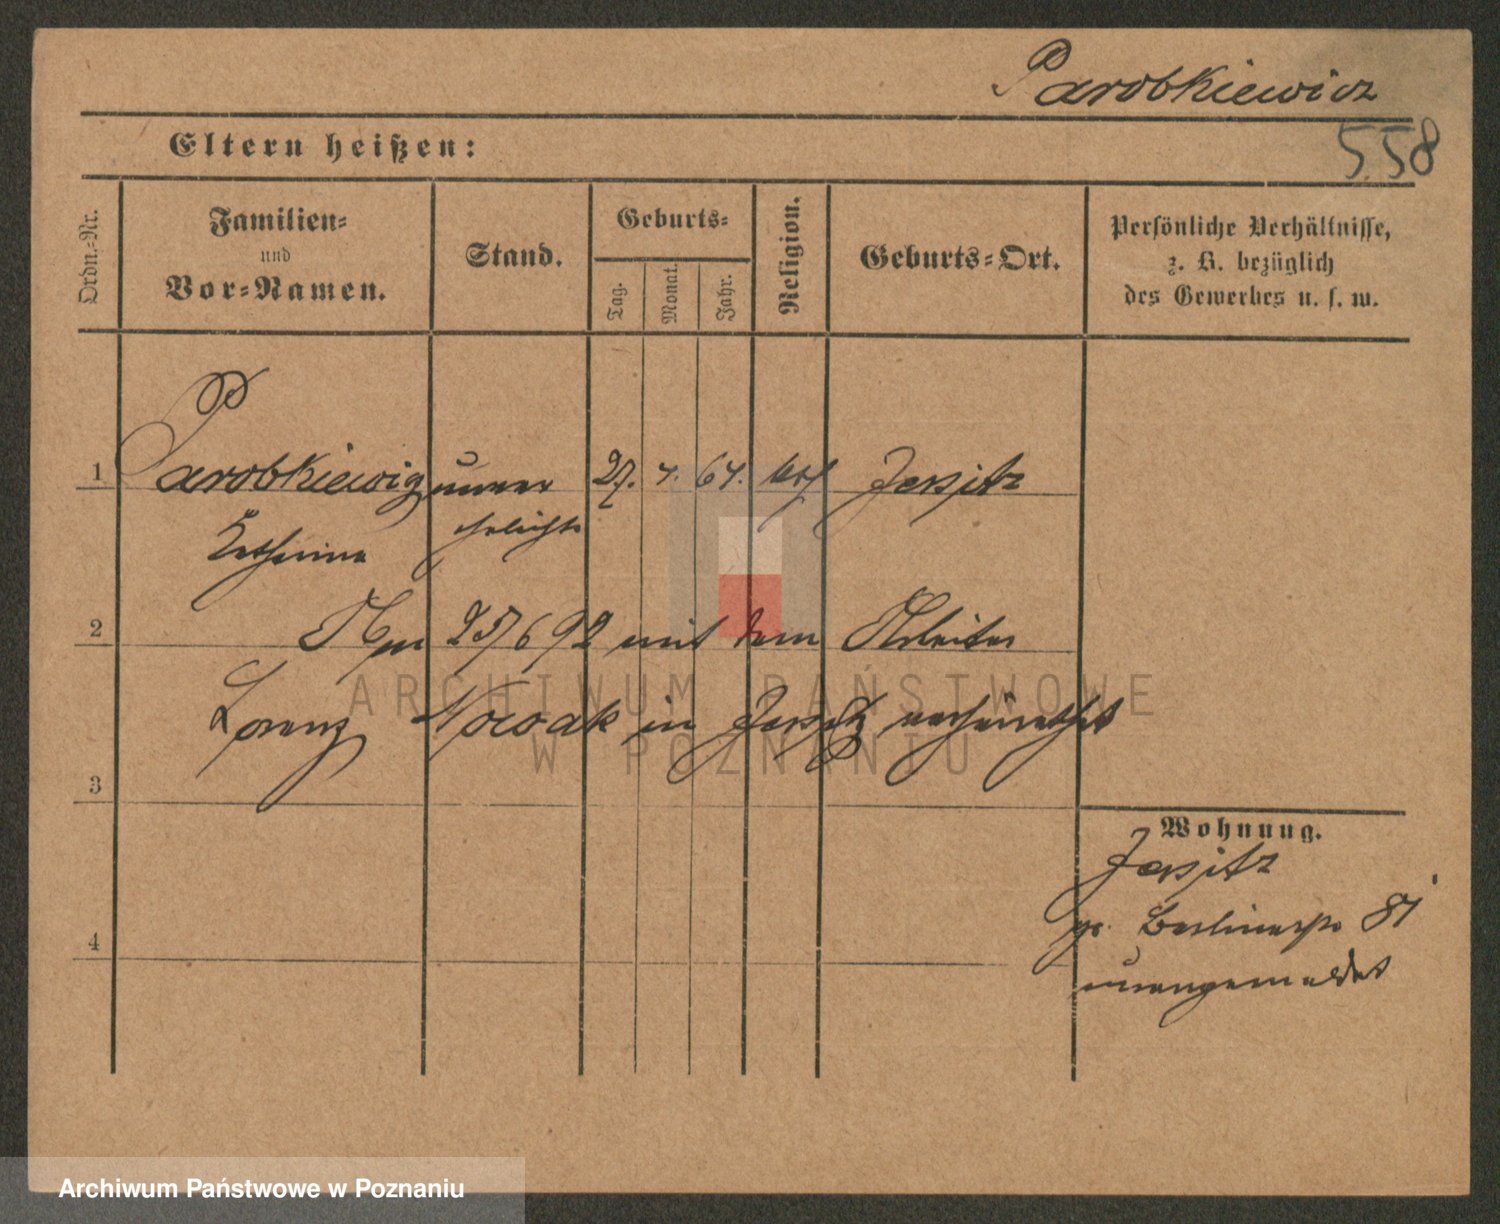 Parobkiewicz
558
Eltern heißen:
Ordn.-Nr.
Familien-
und
Vor-Namen.
Stand.
Geburts-
Tag.
Monat.
Jahr.
Religion.
Geburts-Ort.
Persönliche Verhältnisse,
z. B. bezüglich
des Gewerbes u. s. w.
1 Parobkiewicz unver 27. 4. 64. kath Jersitz
Katharina ehelicht
2 25/6 92 mit dem Arbeiter
Lorenz Nowak in Jersitz verheirathet
3
Wohnung.
Jersitz
gr. Berlinerstr 81
unangemeldet
4
ARCHIWUM PAŃSTWOWE
W POZNANIU
Archiwum Państwowe w Poznaniu